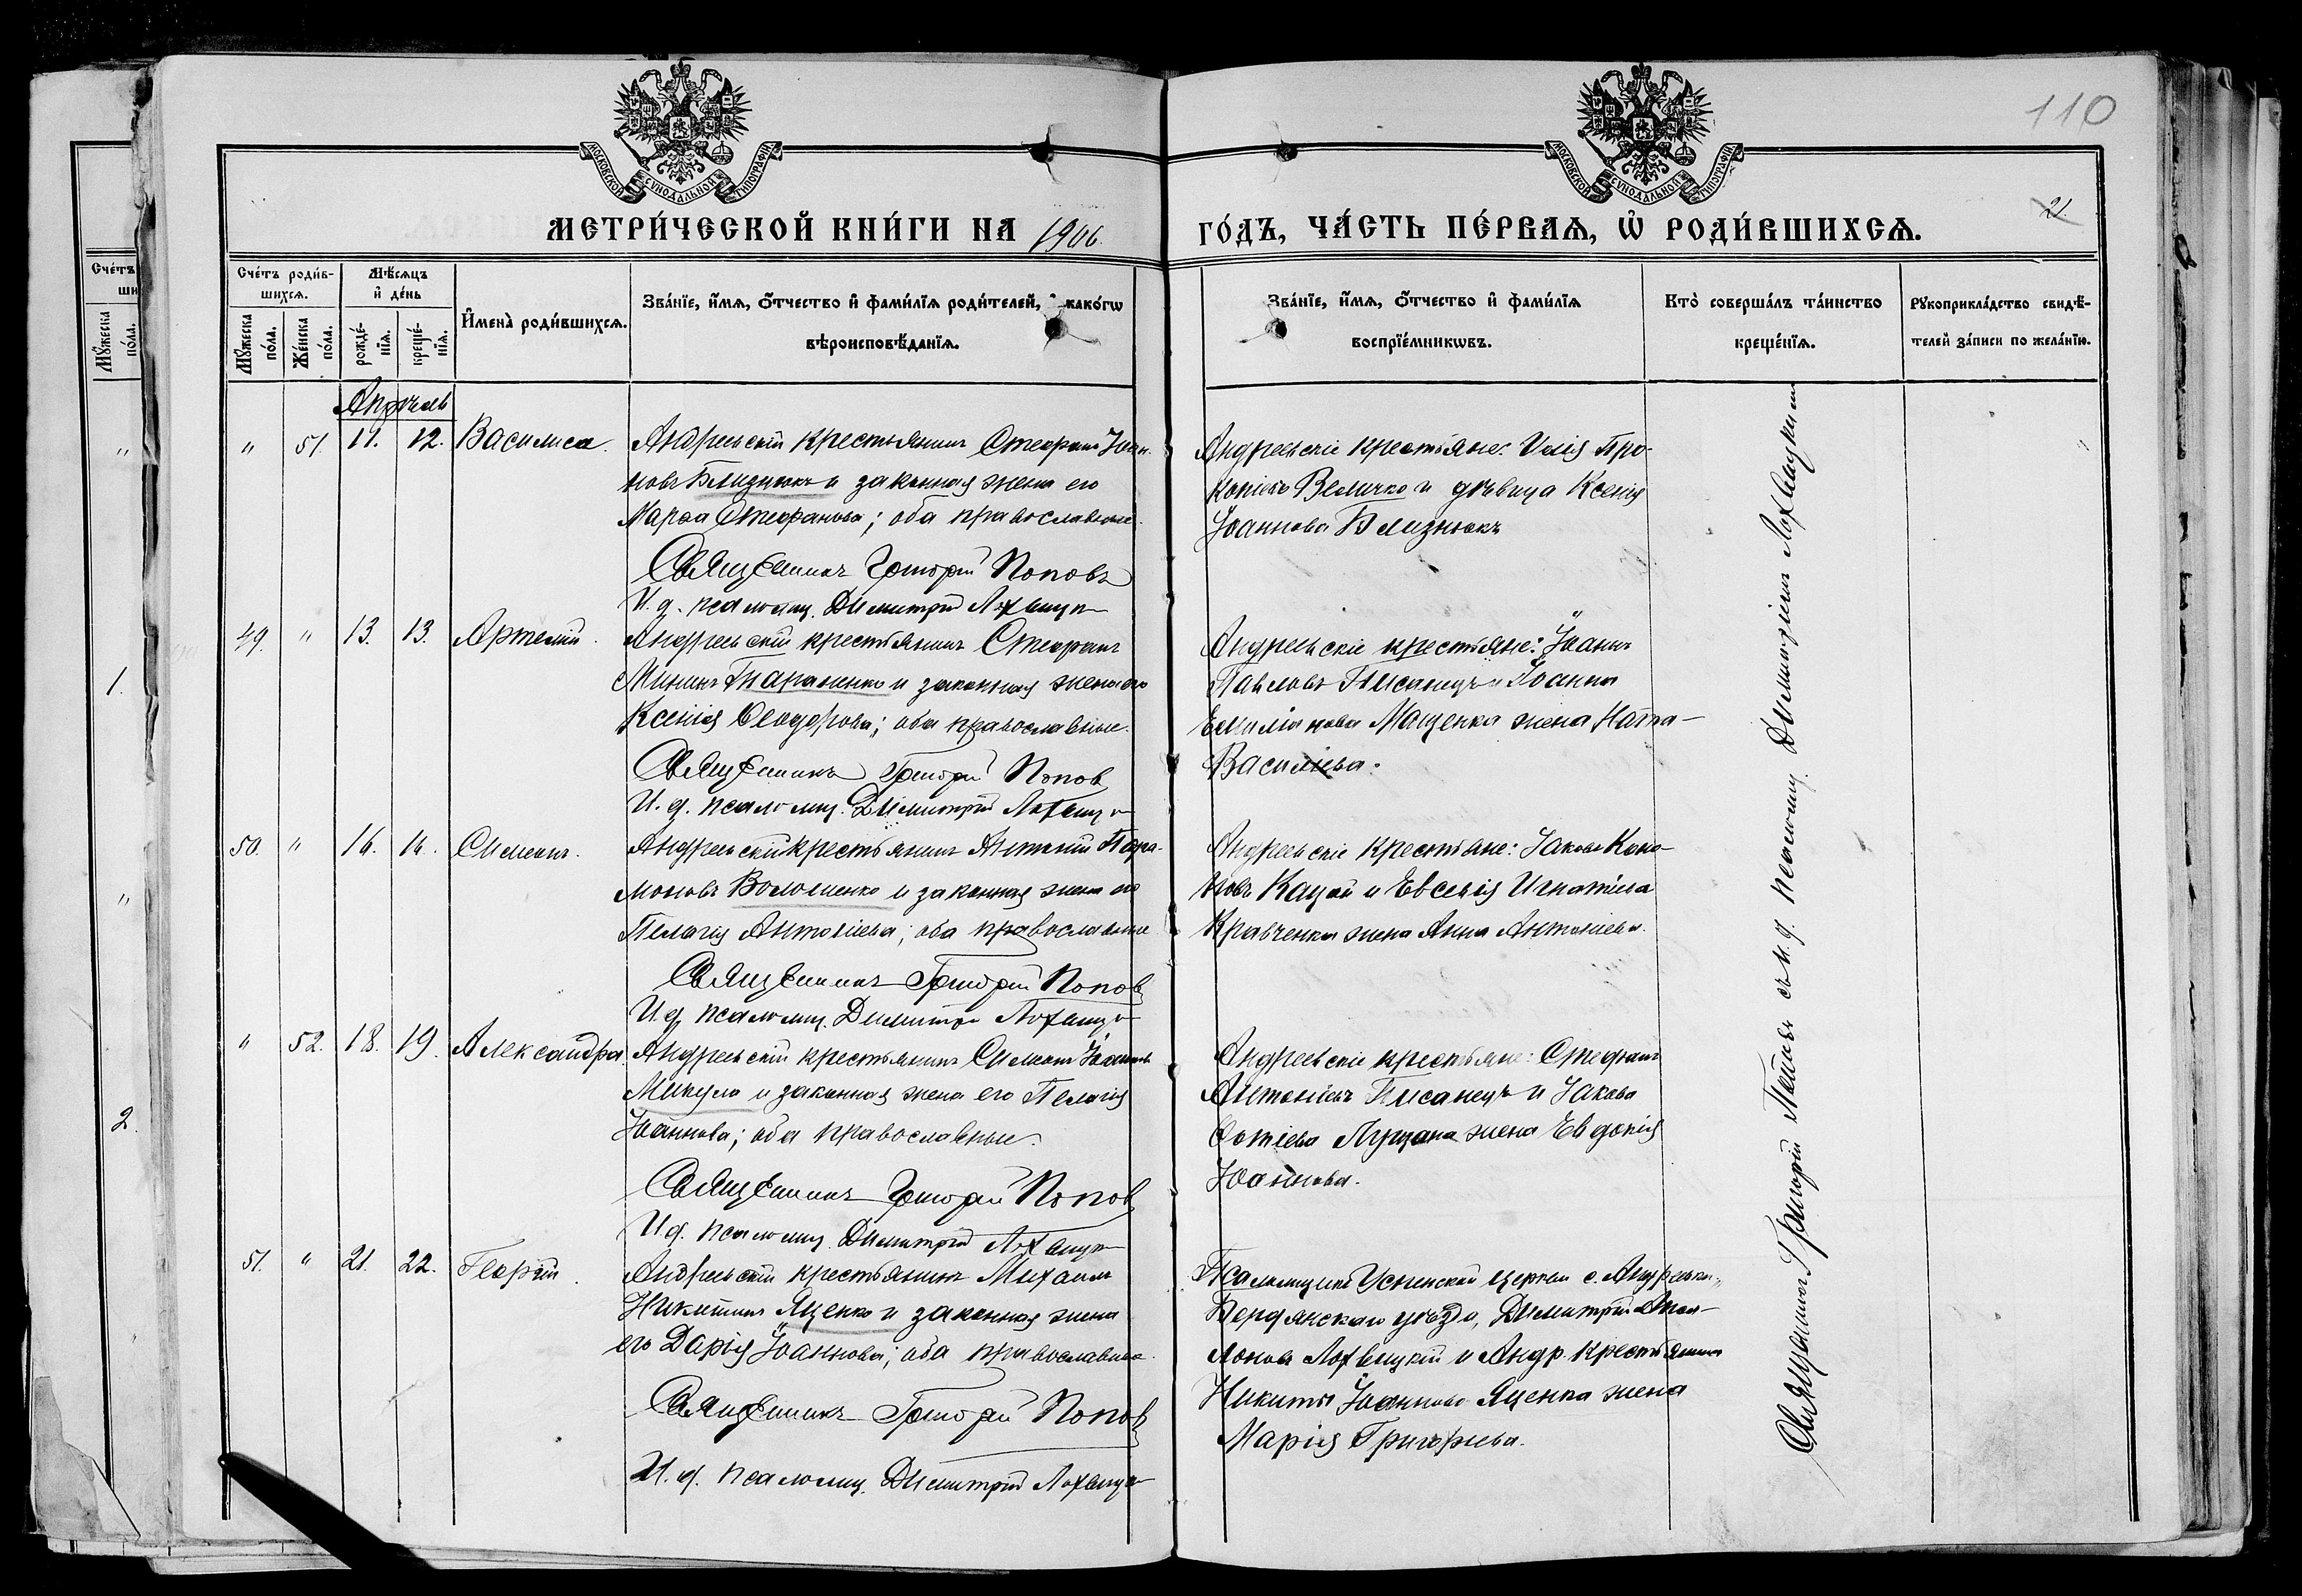 110
МОСКОВСКОЙ СУНОДАЛЬНОЙ ТИПОГРАФІИ
МОСКОВСКОЙ СУНОДАЛЬНОЙ ТИПОГРАФІИ
МЕТРИ́ЧЕСКОЙ КНИ́ГИ НА 1906.
ГО́ДЪ, ЧА́СТЬ ПЕ́РВАѦ, Ѡ҆ РОДИ́ВШИХСѦ.
21.
Счётъ
ши
Мꙋжеска
по́ла.
Сче́тъ роди́в-
шихсѧ.
Мѣ́сѧцъ
и҆ де́нь
Мꙋжеска по́ла.
Же́нска по́ла.
рожде́-
нїѧ.
креще́-
нїѧ.
И҆мена̀ роди́вшихсѧ.
Зва́нїе, и҆́мѧ, ѻ҆́тчество и҆ фами́лїѧ роди́телей, и҆ како́гѡ
вѣроисповѣ́данїѧ.
Зва́нїе, и҆́мѧ, ѻ҆́тчество и҆ фами́лїѧ
воспрїе́мникѡвъ.
Кто̀ соверша́лъ та́инство
креще́нїѧ.
Рꙋкоприкла́дство свидѣ́-
телей за́писи по жела́нїю.
Апрѣль
" 51. 11. 12. Василиса.
Андреевскій крестьянинъ Стефанъ Іоан-
новъ Близнюкъ и законная жена его
Марѳа Стефанова; оба православные.
Священникъ Григорій Поповъ
И. д. псаломщ. Димитрій Лохвицк
Андреевскіе крестьяне: Илія Про-
копіевъ Величко и дѣвица Ксенія
Іоаннова Близнюкъ
49. " 13. 13. Артемій.
Андреевскій крестьянинъ Стефанъ
Мининъ Тараненко и законная жена его
Ксенія Ѳеодорова; оба православные.
Священникъ Григорій Попов
И. д. псаломщ. Димитрій Лохвицк
Андреевскіе крестьяне: Іоаннъ
Павловъ Писанецъ и Іоанна
Емиліанова Маценка жена Ната-
Василіева.
50. " 16. 16. Симеонъ.
Андреевскій крестьянинъ Антоній Пара-
моновъ Волошенко и законная жена его
Пелагія Антоніева; оба православные
Священникъ Григорій Попов
И. д. псаломщ. Димитрі Лохвицк
Андреевскіе крестьяне: Іаковъ Коно-
новъ Кацай и Евсевія Игнатіева
Кравченка жена Анна Антоніева.
" 52. 18. 19. Александра.
Андреевскій крестьянинъ Симеонъ Іоанновъ
Микула и законная жена его Пелагія
Іоаннова; оба православные.
Священникъ Григорій Попов
И. д. псаломщ. Димитрій Лохвицк
Андреевскіе крестьяне: Стефанъ
Антоніевъ Писанецъ и Іакова
Луцана жена Евдокія
Іоаннова.
51. " 21. 22. Георгій.
Андреевскій крестьянинъ Михаилъ
Никитинъ Яценко и законная жена
его Дарія Іоаннова; оба православные.
Священникъ Григорій Попов
И. д. псаломщ. Димитрій Лохвицк
Псаломщикъ Успенской церкви с. Андреевки,
Бердянскаго уѣзда, Димитрій Апол-
лоновъ Лохвицкій и Андр. крестьянина
Никиты Іоаннова Яценка жена
Марія Григорьева.
Священникъ Григорій Поповъ съ и. д. псаломщ. Димитріемъ Лохвицкимъ
"
1.
"
2.